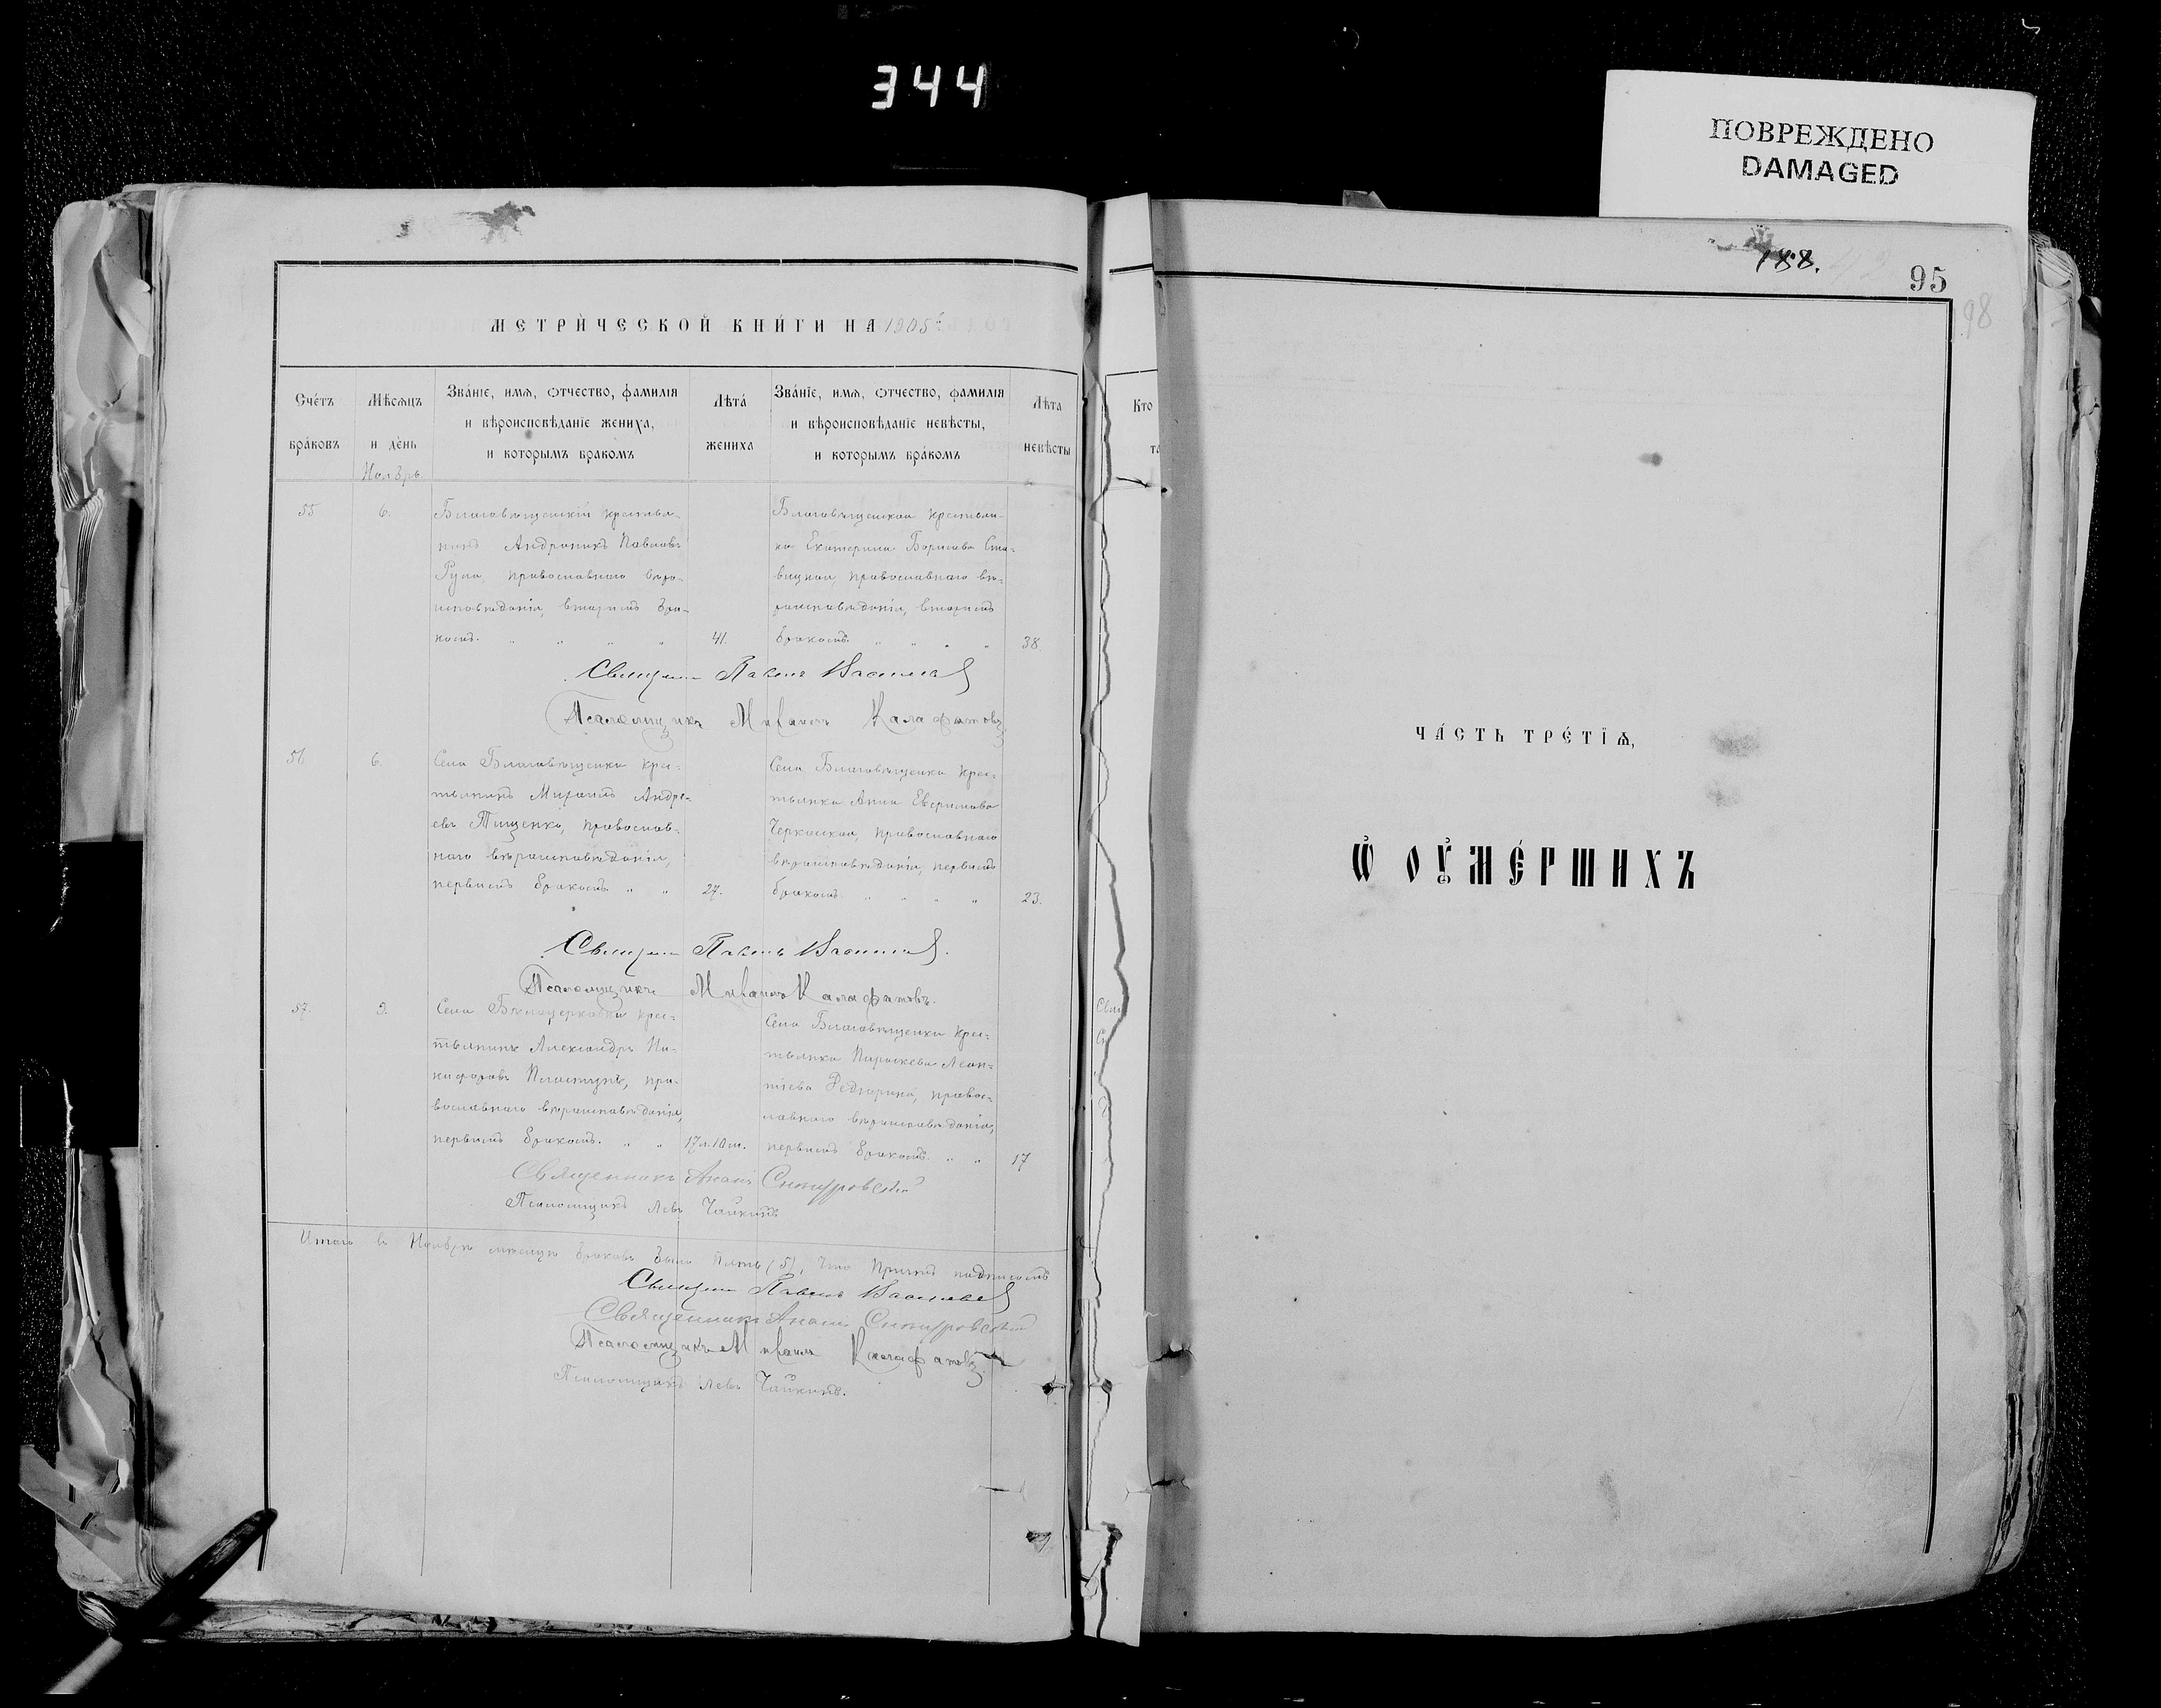 344
ПОВРЕЖДЕНО
DAMAGED
188.
95
98
МЕТРИ́ЧЕСКОЙ КНИ́ГИ НА 1905 г.
Сче́тъ бра́ковъ
Мѣсѧцъ и де́нь
Зва́нїе, имѧ, ѿчество, фамилїѧ
и вѣроисповѣданїе жениха,
и которымъ бракомъ
Лѣта́ жениха
Зва́нїе, имѧ, ѿчество, фамилїѧ
и вѣроисповѣданїе невѣсты,
и которымъ бракомъ
Лѣта невѣсты
Кто
Ноябрь
55
6.
Благовѣщенскій крестья-
нинъ Андроникъ Павловъ
Руса, православнаго вѣро-
исповѣданія, вторымъ бра-
комъ. " " " "
41.
Благовѣщенская крестьян-
ка Екатерина Борисова Ста-
вицкая, православнаго вѣ-
роисповѣданія, вторымъ
бракомъ. " " " "
38.
Священн Павелъ Васильев
Псаломщикъ Михаилъ Калафатовъ
56
6.
Села Благовѣщенки крес-
тьянинъ Михаилъ Андре-
евъ Тищенко, православ-
наго вѣроисповѣданія,
первымъ бракомъ " "
27.
Села Благовѣщенки крес-
тьянка Анна Евфимова
Черкаская, православнаго
вѣроисповѣданія, первымъ
бракомъ " " " "
23.
Священн Павелъ Васильев.
Псаломщикъ Михаилъ Калафатовъ.
57.
Села Бѣлоцерковки крес-
тьянинъ Александръ Ни-
кифоровъ Пластунъ, пра-
вославнаго вѣроисповѣданія,
первымъ бракомъ. " "
17 л. 10 м.
Села Благовѣщенки крес-
тьянка Параскева Леон-
тіева Федорина, правос-
лавнаго вѣроисповѣданія,
первымъ бракомъ. " "
17
Священникъ
Псаломщикъ Левъ Чайкинъ
Итого въ Ноябрѣ мѣсяцѣ браковъ было пять (5), что причтъ подписомъ
Священн Павелъ Васильев
Священникъ
Псаломщикъ Михаилъ Калафатовъ
Псаломщикъ Левъ Чайкинъ.
ЧА́СТЬ ТРЕ́ТЇѦ,
Ѡ҆ ОУ҆МЕ́РШИХЪ